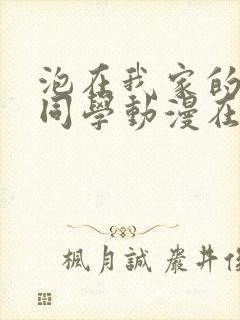 泡在我家的
同學動漫在
楓月誠 嚴井俊